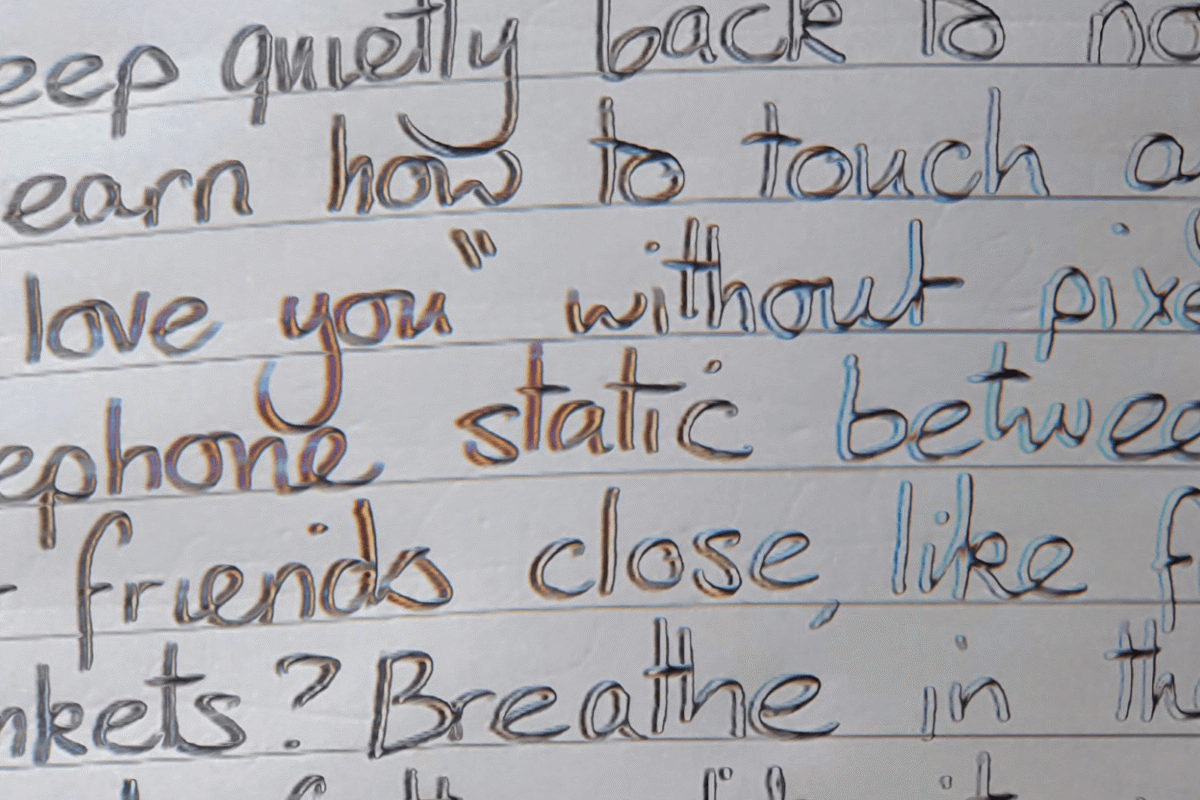 eep quietly back to no
earn how to touch a
love you" without pixe
ephone static betwee
friends close, like f
nkets? Breathe in th